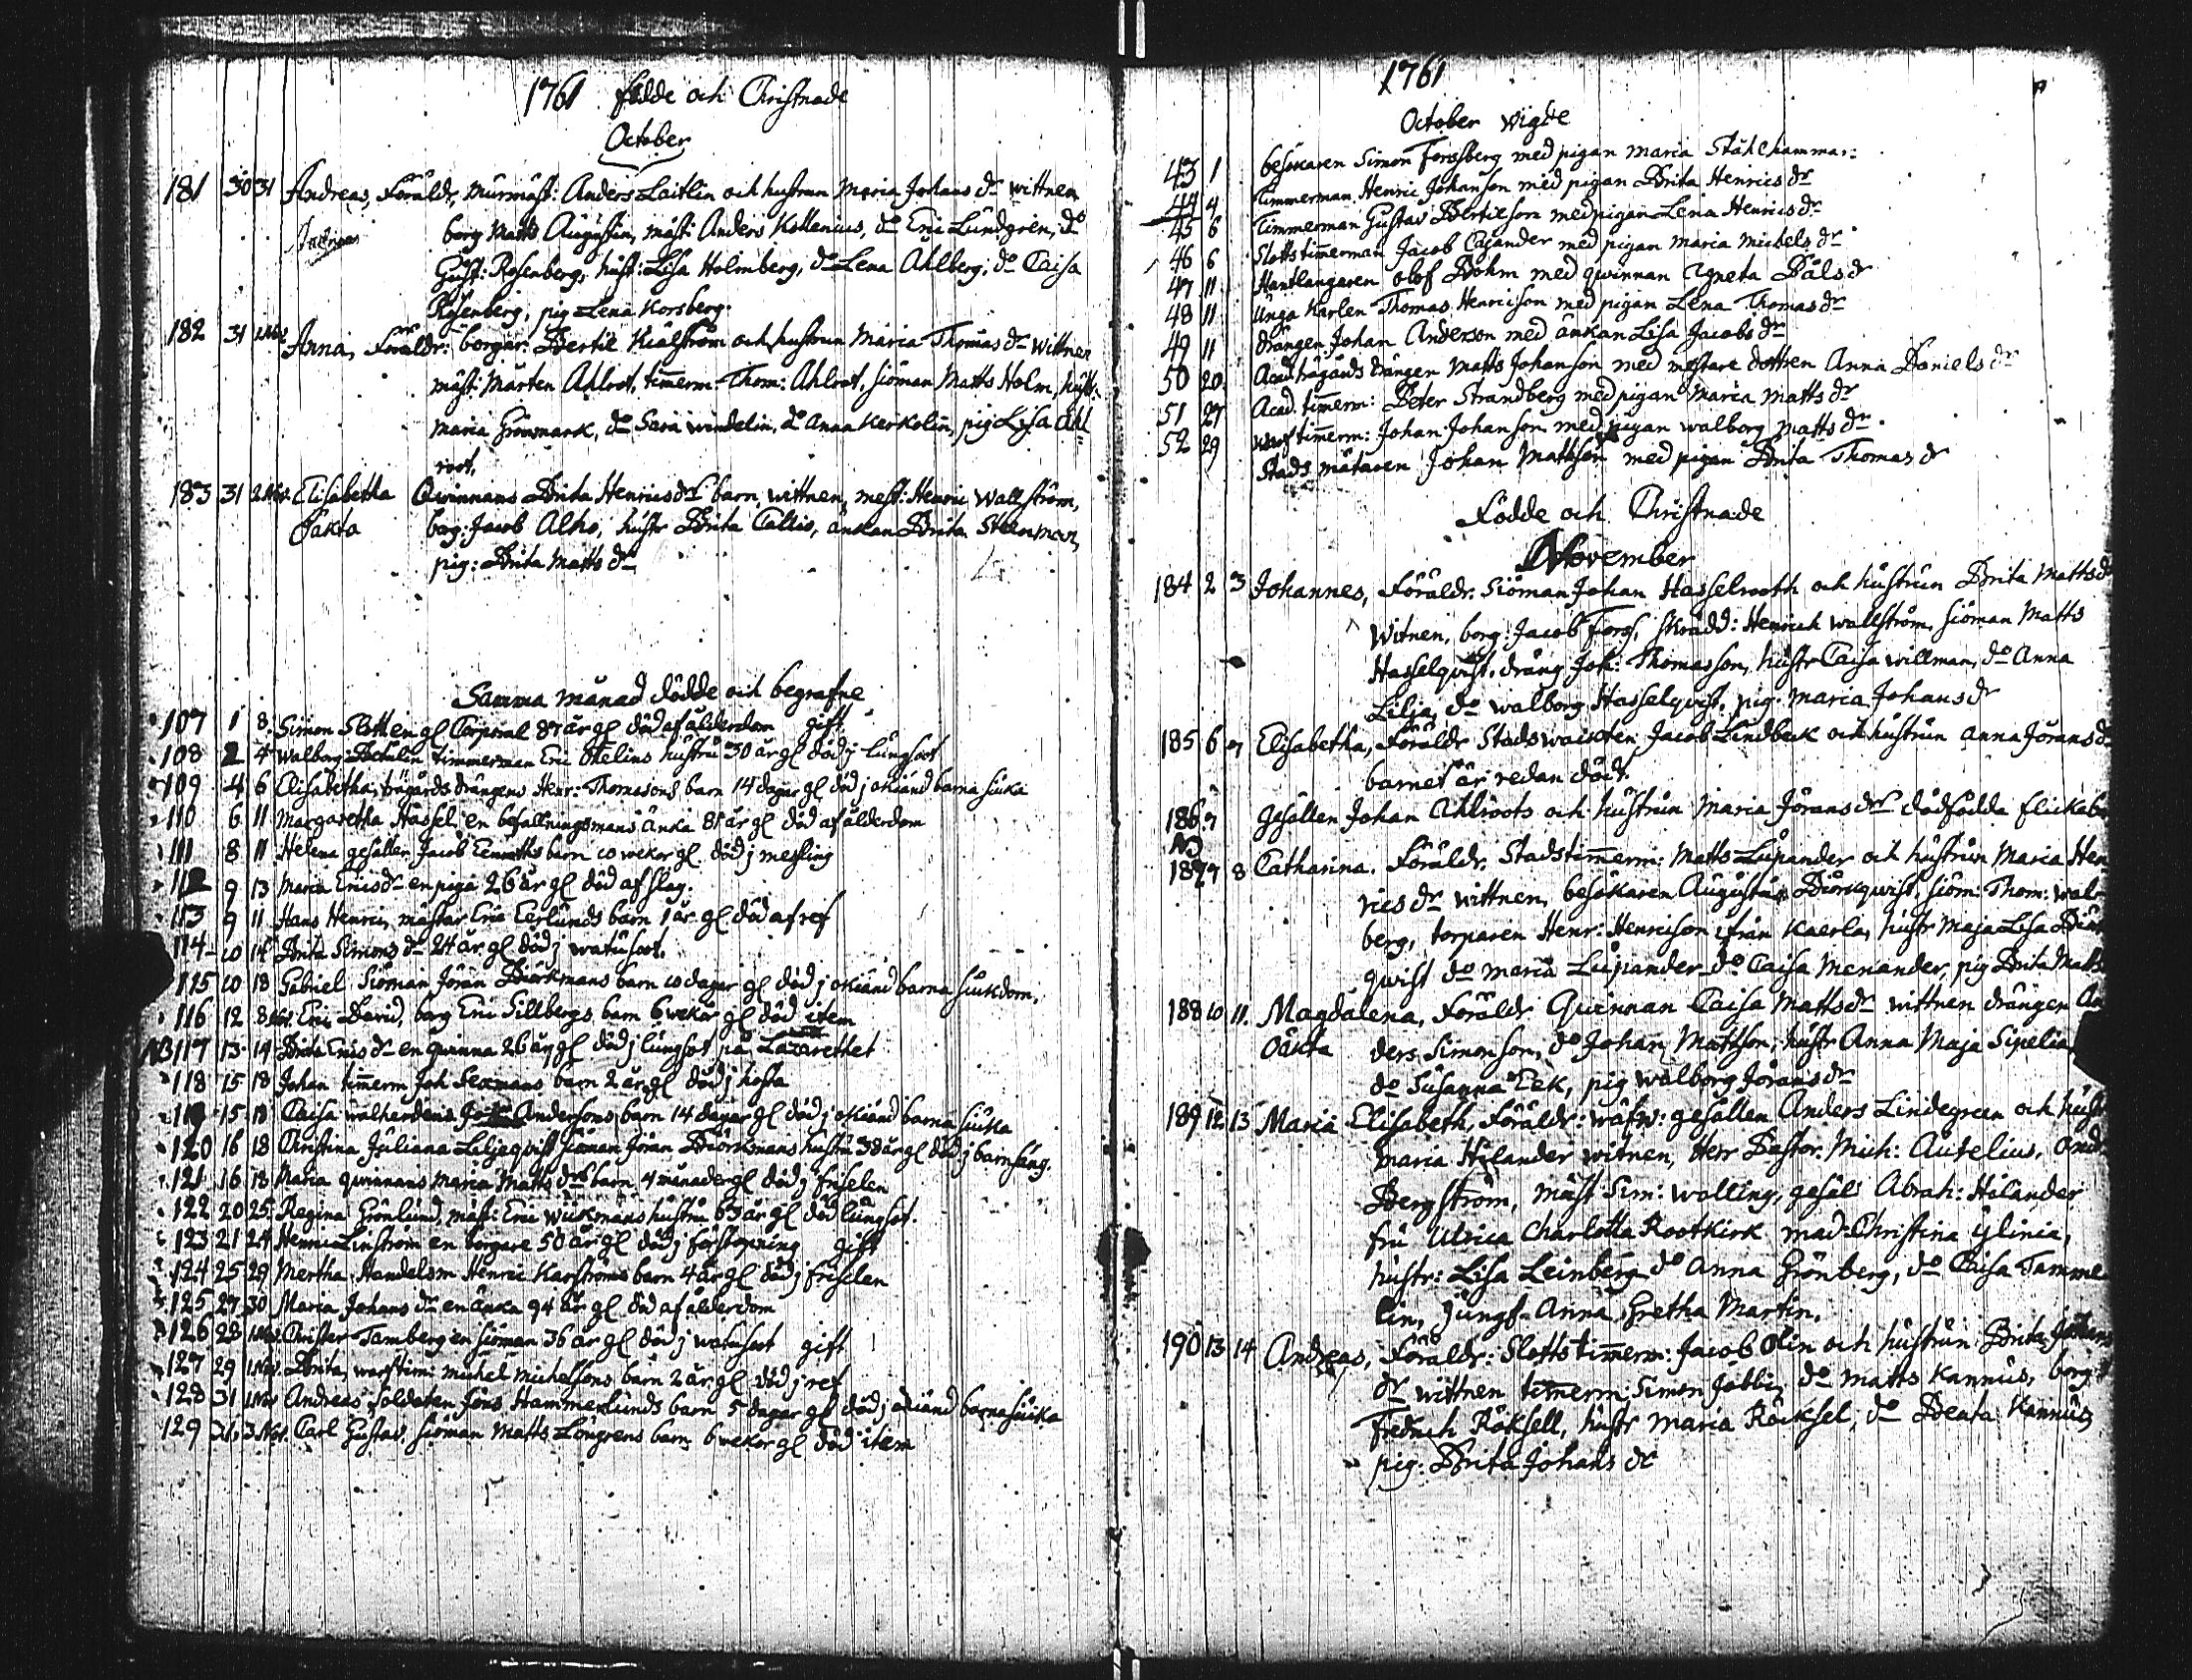 1761 födde och Christnade
October
181 30 31 Andreas, Föräldr, Murmäst: Anders Laitlin och hustrun Maria Johans dr wittnen
borg Matts Augustin, mäst: Anders Kellenius, do Eric Lundgren, do
Andreas
Gust: Rosenberg, hust: Lisa Holmberg, do Lena Ahlberg, do Caisa
Rosenberg, pig Lena Korsberg.
182 31 1 Nov Anna, Föräldr: borgar: Bertil Kiälström och hustrun Maria Thomas dr Wittnen
mäst: Mårten Ahlrot, timerm Thom: Ahlrot, siöman Matts Holm, hustr:
Maria Grönmark, do Sara Windelin, do Anna Kerkolin, pig Lisa Ahl=
root,
183 31 2 Nov. Elisabetha Qwinnans Brita Henrics dr barn wittnen, mest: Henric Wallström,
Oäkta borg: Jacob Alho, hustr Brita Callio, änkan Brita Stenman,
pig: Brita Matts dr
Samma månad dödde och begrafne
107 1 8 Simon Slotten gl Corporal 87 år gl död af ålderdom gift
108 2 4 Walborg timmerman Eric Okelins hustru 30 år gl död j lungsoot
109 4 6 Elisabetha, trägårds drängens Henr: Thomasons barn 14 dagar gl död j okiänd barna siuka
110 6 11 Margaretha Hassel: en befallningsmans änka 81 år gl död af ålderdom
111 8 11 Helena gesällen Jacob barn 10 wekor gl död j messling
112 9 13 Maria Erics dr en piga 26 år gl död af slag.
113 9 11 Hans Henric, mästar Eric Eerlunds barn 1 år gl död af ref
114 10 14 Brita Simons dr 24 år gl död j watusoot.
115 10 18 Gabriel Siöman Jöran Biörkmans barn 10 dagar gl död j okiänd barna siukdom.
116 12 8 Nov. Eric David, borg Eric Sillbergs barn 6 wekor gl död item
NB 117 13 14 Brita Erics dr en qwinna 26 år gl död j lungsot på Lazarethet
118 15 18 Johan timerm Joh Sexmans barn 2 år gl död j hosta
119 15 18 Caisa walherdens Andersons barn 14 dagar gl död j okiänd barna siuka
120 16 18 Christina Juliana Liljeqvist siöman Jöran Biörkmans hustru 38 år gl död j barnsäng.
121 16 18 Maria qwinnans Maria Matts drs barn 4 månader gl död j friselen
122 20 25 Regina Grönlund, mäst: Eric Wickmans hustru 63 år gl död lungsot.
123 21 24 Henric Linstrom en borgare 50 år gl död j förstopning gift
124 25 29 Mertha, Handelsm Henric Karströms barn 4 år gl död j friselen
125 27 30 Maria Johans dr en änka 94 år gl död af ålderdom
126 28 1 Nov. Christer Tamberg en siöman 36 år gl död j watusoot gift
127 29 1 Nov. Brita, warftim: michel michelsons barn 2 år gl död j ref
128 31 1 Nov Andreas soldaten Jöns Hammerlunds barn 5 dagar gl död j okiänd barnasiuka
129 31 3 Nov. Carl Gustav, siöman Matts Löngrens barn 6 wekor gl död item
1761
October Wigde
43 1 besökaren Simon Forssberg med pigan maria Stålhammar:
44 4 Timmerman Henric Johanson med pigan Brita Henrics dr
45 6 Timmerman Gustav Bertilson med pigan Lena Henrics dr
46 6 Slottstimerman Jacob Cajander med pigan maria michels dr
47 11 Hantlangaren olof Bohm med qwinnan Agneta Påls dr
48 11 Unga Karlen Thomas Henricson med pigan Lena Thomas dr
49 11 drängen Johan Anderson med änkan Lisa Jacobs dr
50 20 Acad trägårds drängen Matts Johanson med mestare dottren Anna Daniels dr
51 27 Acad. timerm: Peter Strandberg med pigan Maria Matts dr
52 29 warftimerm: Johan Johanson med pigan walborg matts dr
Stads mätaren Johan Mattsson med pigan Brita Thomas dr
Födde och Christnade
November
184 2 3 Johannes, Föräldr. Siöman Johan Hasselrooth och hustrun Brita Matts dr
Witnen, borg: Jacob Forss, skrädd: Henrich Wallström, siöman Matts
Hasselqvist, dräng Joh: Thomasson, hustr Caisa Willman, do Anna
Lilja, do walborg Hasselqvist, pig. maria Johans dr
185 6 7 Elisabetha, Föräldr Stadswackten Jacob Lindbeck och hustrun Anna Jörans dr
barnet är redan död.
186 7 Gesällen Johan Ahlroots och hustrun Maria Jörans drs dödfödda flickeba
NB
187 7 8 Catharina. Föräldr, Stadstimerm: Matts Lupander och hustrun Maria Hen
rics dr wittnen, besökaren Augustus Biörkqwist, siöm: Thom: Wal=
berg, torparen Henr: Henricson ifrån Kaerla, hustr Maja Lisa Biör
qwist do maria Lupander do Caisa Menander, pig Brita Matts
188 10 11. Magdalena, Föräldr Qwinnan Caisa Matts dr wittnen drängen An
Oäkta ders Simonson, do Johan Mattsson, hustr Anna Maja Sipelia
do Susanna Eek, pig walborg Jörans dr
189 12 13 Maria Elisabeth, Föräldr: wäfw: gesällen Anders Lindegreen och hust
maria Hilander witnen, Herr Pastor. Mich: Autelius, And:
Bergström, mäst Sim: walling, gesäl Abrah: Hilander
fru Ulrica Charlotta Rootkirk mad Christina Ylinia,
hustr: Lisa Leinberg do Anna Grönberg, do Caisa Tamme
lin, Jungf. Anna Gretha Martin.
190 13 14 Andreas, Föräldr: Slottstimerm: Jacob Olin och hustrun Brita Johans
dr wittnen timerm: Simon Jobbi, do matts Kannus, borg:
Fredrich Röksell, hustr maria Röcksel, do Beata Kannus,
pig: Brita Johans dr